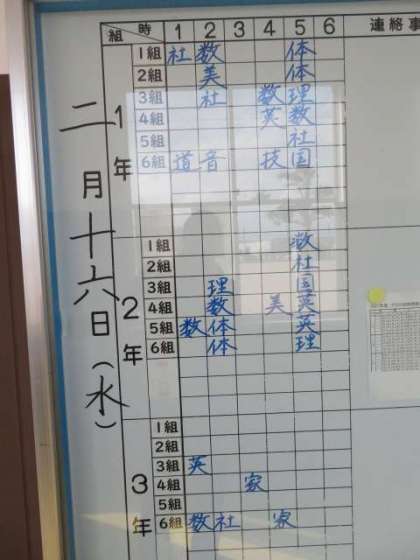 二月十六日(水)
組 時 1 2 3 4 5 6 連絡事
1年
1組 社 数 体
2組 美 体
3組 社 数 理
4組 英 数
5組 社
6組 道 音 技 国
2年
1組 数
2組 社
3組 理 国
4組 数 美 英
5組 数 体 英
6組 体 理
3年
1組
2組
3組 英
4組 家
5組
6組 数 社 家